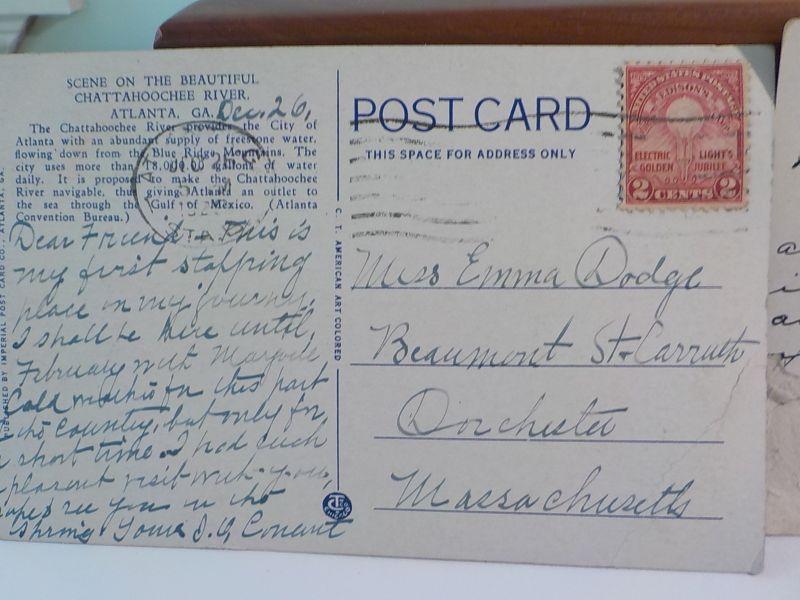 SCENE ON THE BEAUTIFUL
CHATTAHOOCHEE RIVER,
ATLANTA, GA.
Dec. 26,
The Chattahoochee River provides the City of
Atlanta with an abundant supply of freestone water,
flowing down from the Blue Ridge Mountains. The
city uses more than 18,000,000 gallons of water
daily. It is proposed to make the Chattahoochee
River navigable, thus giving Atlanta an outlet to
the sea through the Gulf of Mexico. (Atlanta
Convention Bureau.)
Dear Friend - This is
my first stopping
place on my journey.
I shall be here until
February with Marjorie
Cold in this part
the country, but only for
short time. I had such
pleasant visit with you,
see you in the
Spring Yours J. G. Conant
PUBLISHED BY IMPERIAL POST CARD CO., ATLANTA, GA.
C. T. AMERICAN ART COLORED
POST CARD
THIS SPACE FOR ADDRESS ONLY
UNITED STATES POSTAGE
EDISON'S
ELECTRIC LIGHT'S
GOLDEN JUBILEE
2 CENTS 2
Miss Emma Dodge
Beaumont St & Carruth
Dorchester
Massachusetts